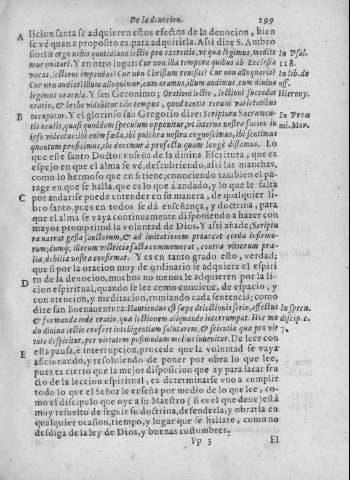 De la deuocion. 299
A licion santa se adquieren estos efectos de la deuocion, bien
se vè quan a proposito es para adquirirla. Assi dize S. Ambro
sio: Sit ergo nobis quotidiana lectio pro exercitio, vt quæ legimus, medite In Psal.
mur imitari. Y en otro lugar: Cur non illa tempora quibus ab Ecclesia 118.
vacas lectioni impendas? Cur non Christum reuisas? Cur non alloquaris? In lib. de
Cur non audias? illum alloquimur, cum oramus, illum audimus, cum diuina off.
legimus oracula. Y san Geronimo; Orationi lectio, lectioni succedat Hierony.
oratio, & breue videbitur tibi tempus, quod tantis rerum varietatibus
B occupatur. Y el glorioso san Gregorio dize: Scriptura Sacramen- In Proœ
tis oculis, quasi quoddam speculum opponitur, vt interna nostra facies in mi. Mor.
ipso videatur: ibi enim fœda, ibi pulchra nostra cognoscimus, ibi sentimus
quantum proficimus, ibi docemur à profectu quam longè distamus. Lo
que este santo Doctor enseña de la diuina Escritura, que es
espejo en que el alma se vè, descubriendo, assi las manchas,
como lo hermoso que en si tiene; conociendo tambien el pa-
rage en que se halla, que es lo que â andado, y lo que le falta
C por andar se puede entender en su manera, de qualquier li-
bro santo, pues en todos se dà enseñança, y doctrina, para
que el alma se vaya continuamente disponiendo a hazer con
mayor promptitud la voluntad de Dios. Y assi añade; Scriptu
ra narrat gesta sanctorum, & ad imitationem prouocat corda infirmo-
rum; dumq; illorum victricia facta commemorat, contra vitiorum præ-
lia, debilia nostra confirmat. Y es en tanto grado esto, verdad;
que si por la oracion muy de ordinario se adquiere el espiri
D tu de la deuocion, muchos no menos le adquieren por la li-
cion espiritual, quando se lee como conuiene, de espacio, y
con atencion, y meditacion, rumiando cada sentencia; como
dize san Buenauentura: Hauriendus est sæpe de lectionis serie, affectus In specu.
& formanda inde oratio, quæ lectionem aliquando interrumpat. Hæc mo discip. c.
do diuina lectio confert intelligentiam salutarem, & scientia quæ pro vir 7.
tute despicitur, per virtutem postmodum melius inuenitur. De leer con
E esta pausa, è interrupcion, procede que la voluntad se vaya
aficionando, y resoluiendo de poner por obra lo que lee,
pues es cierto que la mejor disposicion que ay para sacar fru
cto de la leccion espiritual, es determinarse vno a cumplir
todo lo que el Señor le enseña por medio de lo que lee, co-
mo el discipulo que oye a su Maestro ( si es el que deue) està
muy resuelto de seguir su doctrina, defenderla, y obrarla en
qualquier ocasion, tiempo, y lugar que se hallare, como no
desdiga de la ley de Dios, y buenas costumbres.
Pp 3 El